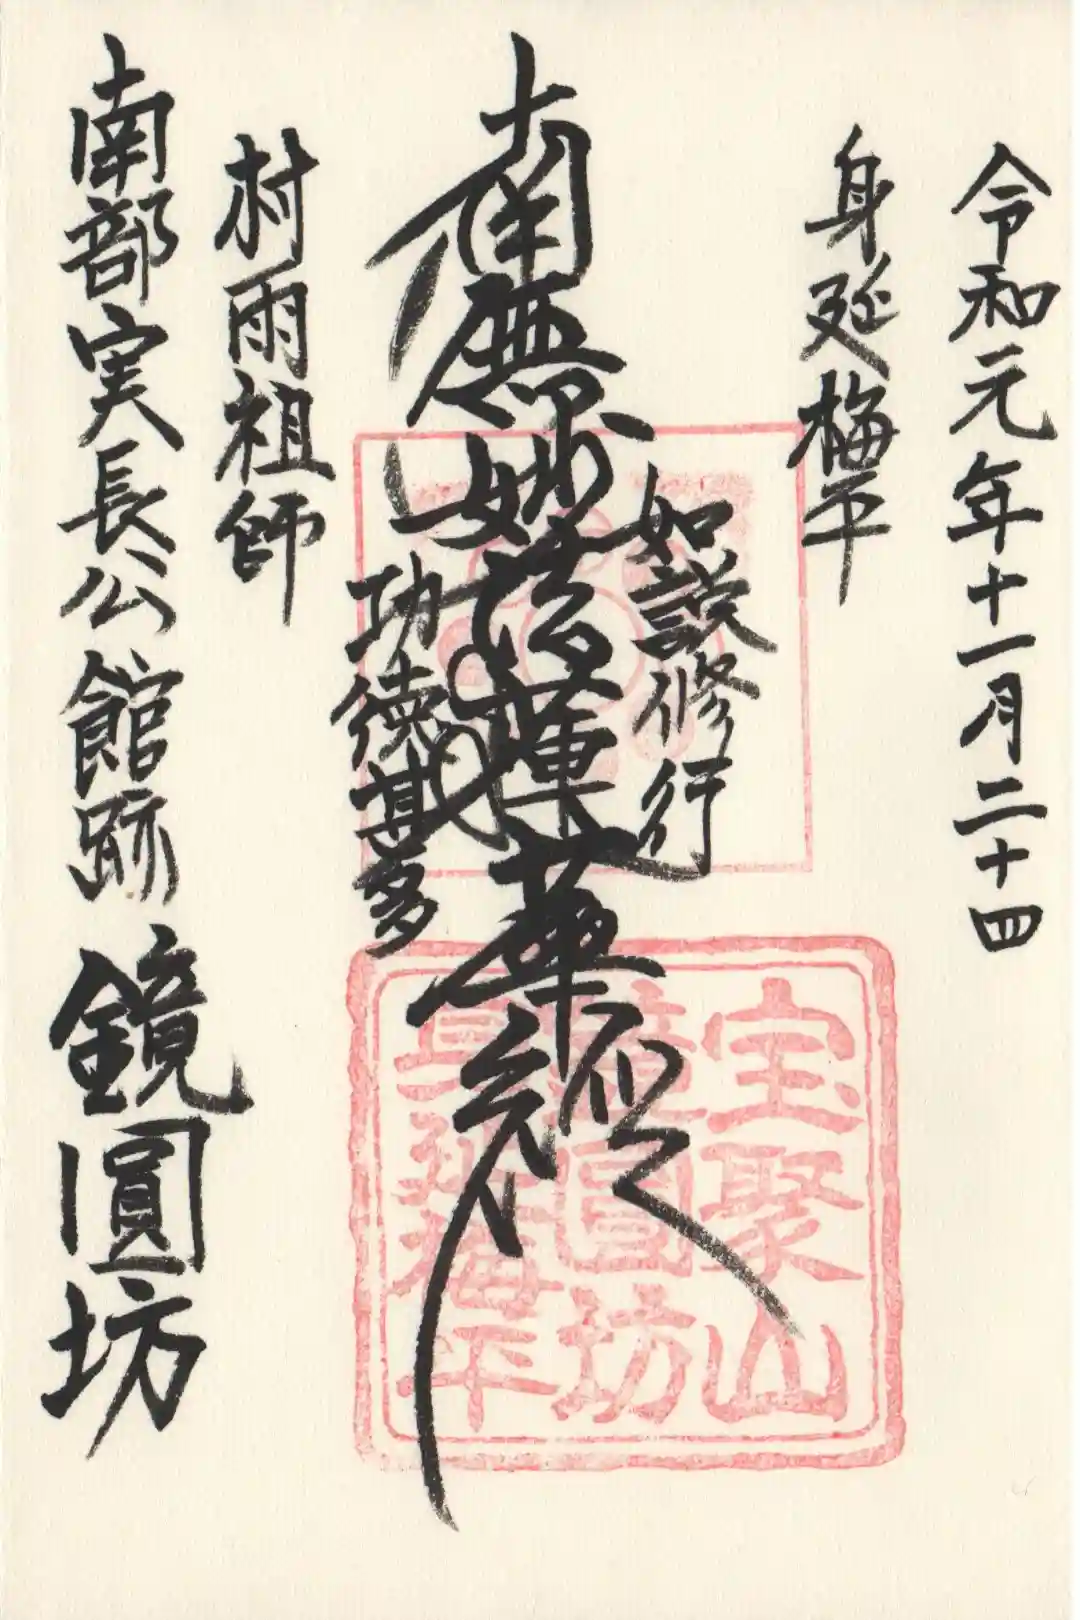 令和元年十一月二十四
身延梅平
如説修行
南無妙法蓮華経
功徳甚多
村雨祖師
南部実長公館跡 鏡圓坊
宝聚山
鏡圓坊
身延梅平